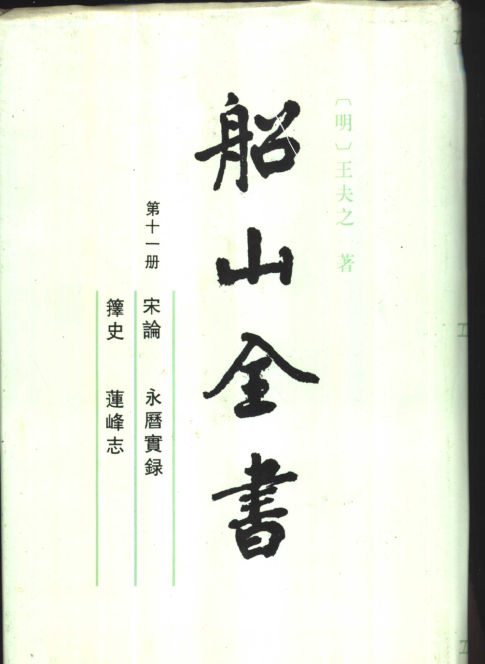 〔明〕王夫之 著
船山全書
第十一册
宋論 永曆實録
籜史 蓮峰志